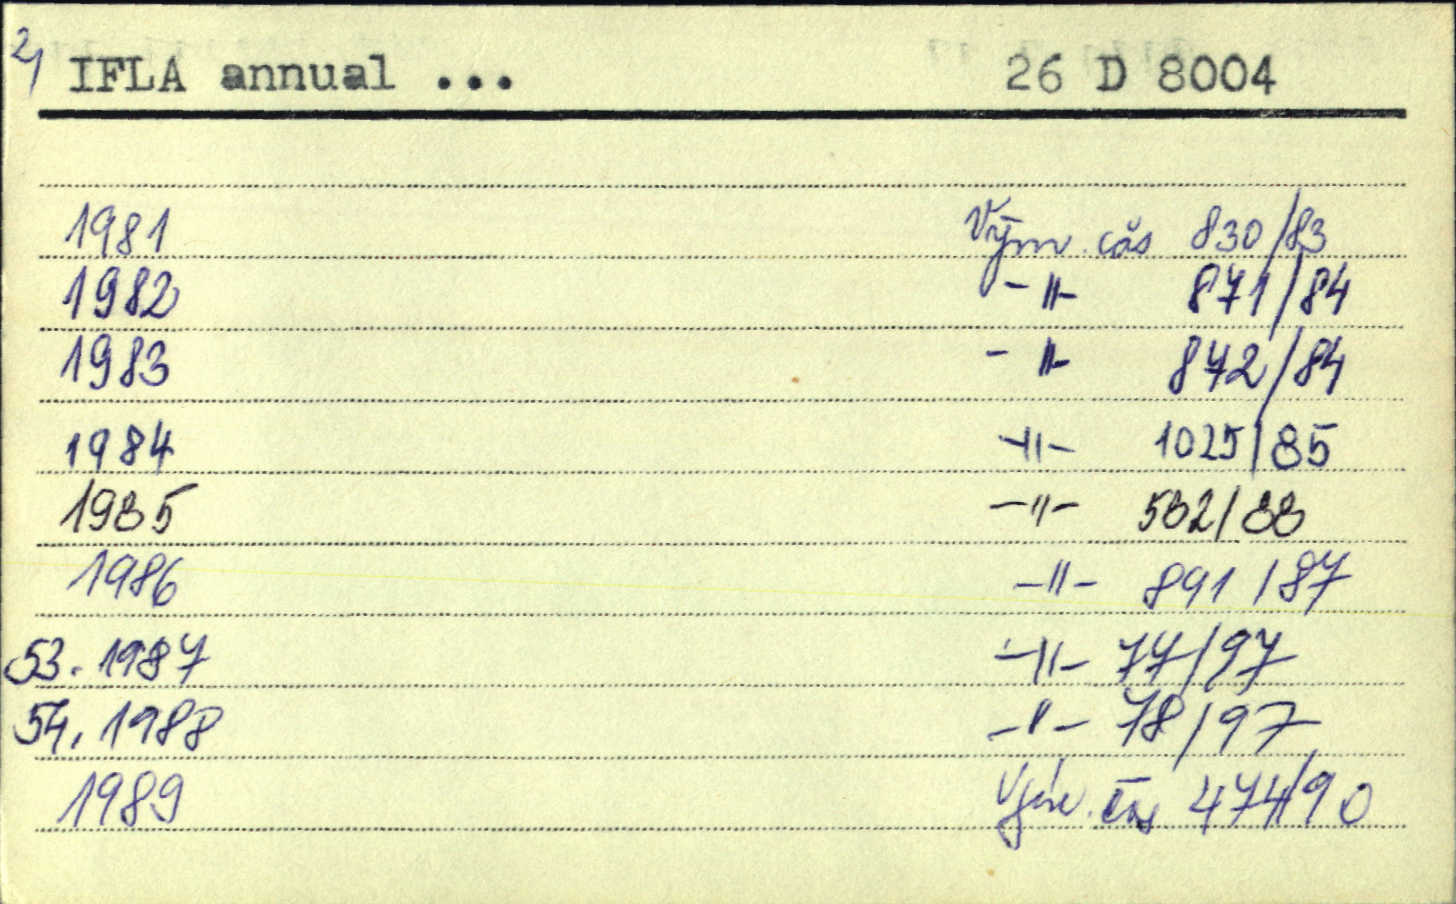 2, IFLA annual ... 26 D 8004
1981 Vým. čas 830/83
1982 -"- 871/84
1983 -"- 872/84
1984 -"- 1025/85
1985 -"- 532/88
1986 -"- 891/87
53. 1987 -"- 77/97
54, 1988 -"- 78/97
1989 Vým. čas 474/90